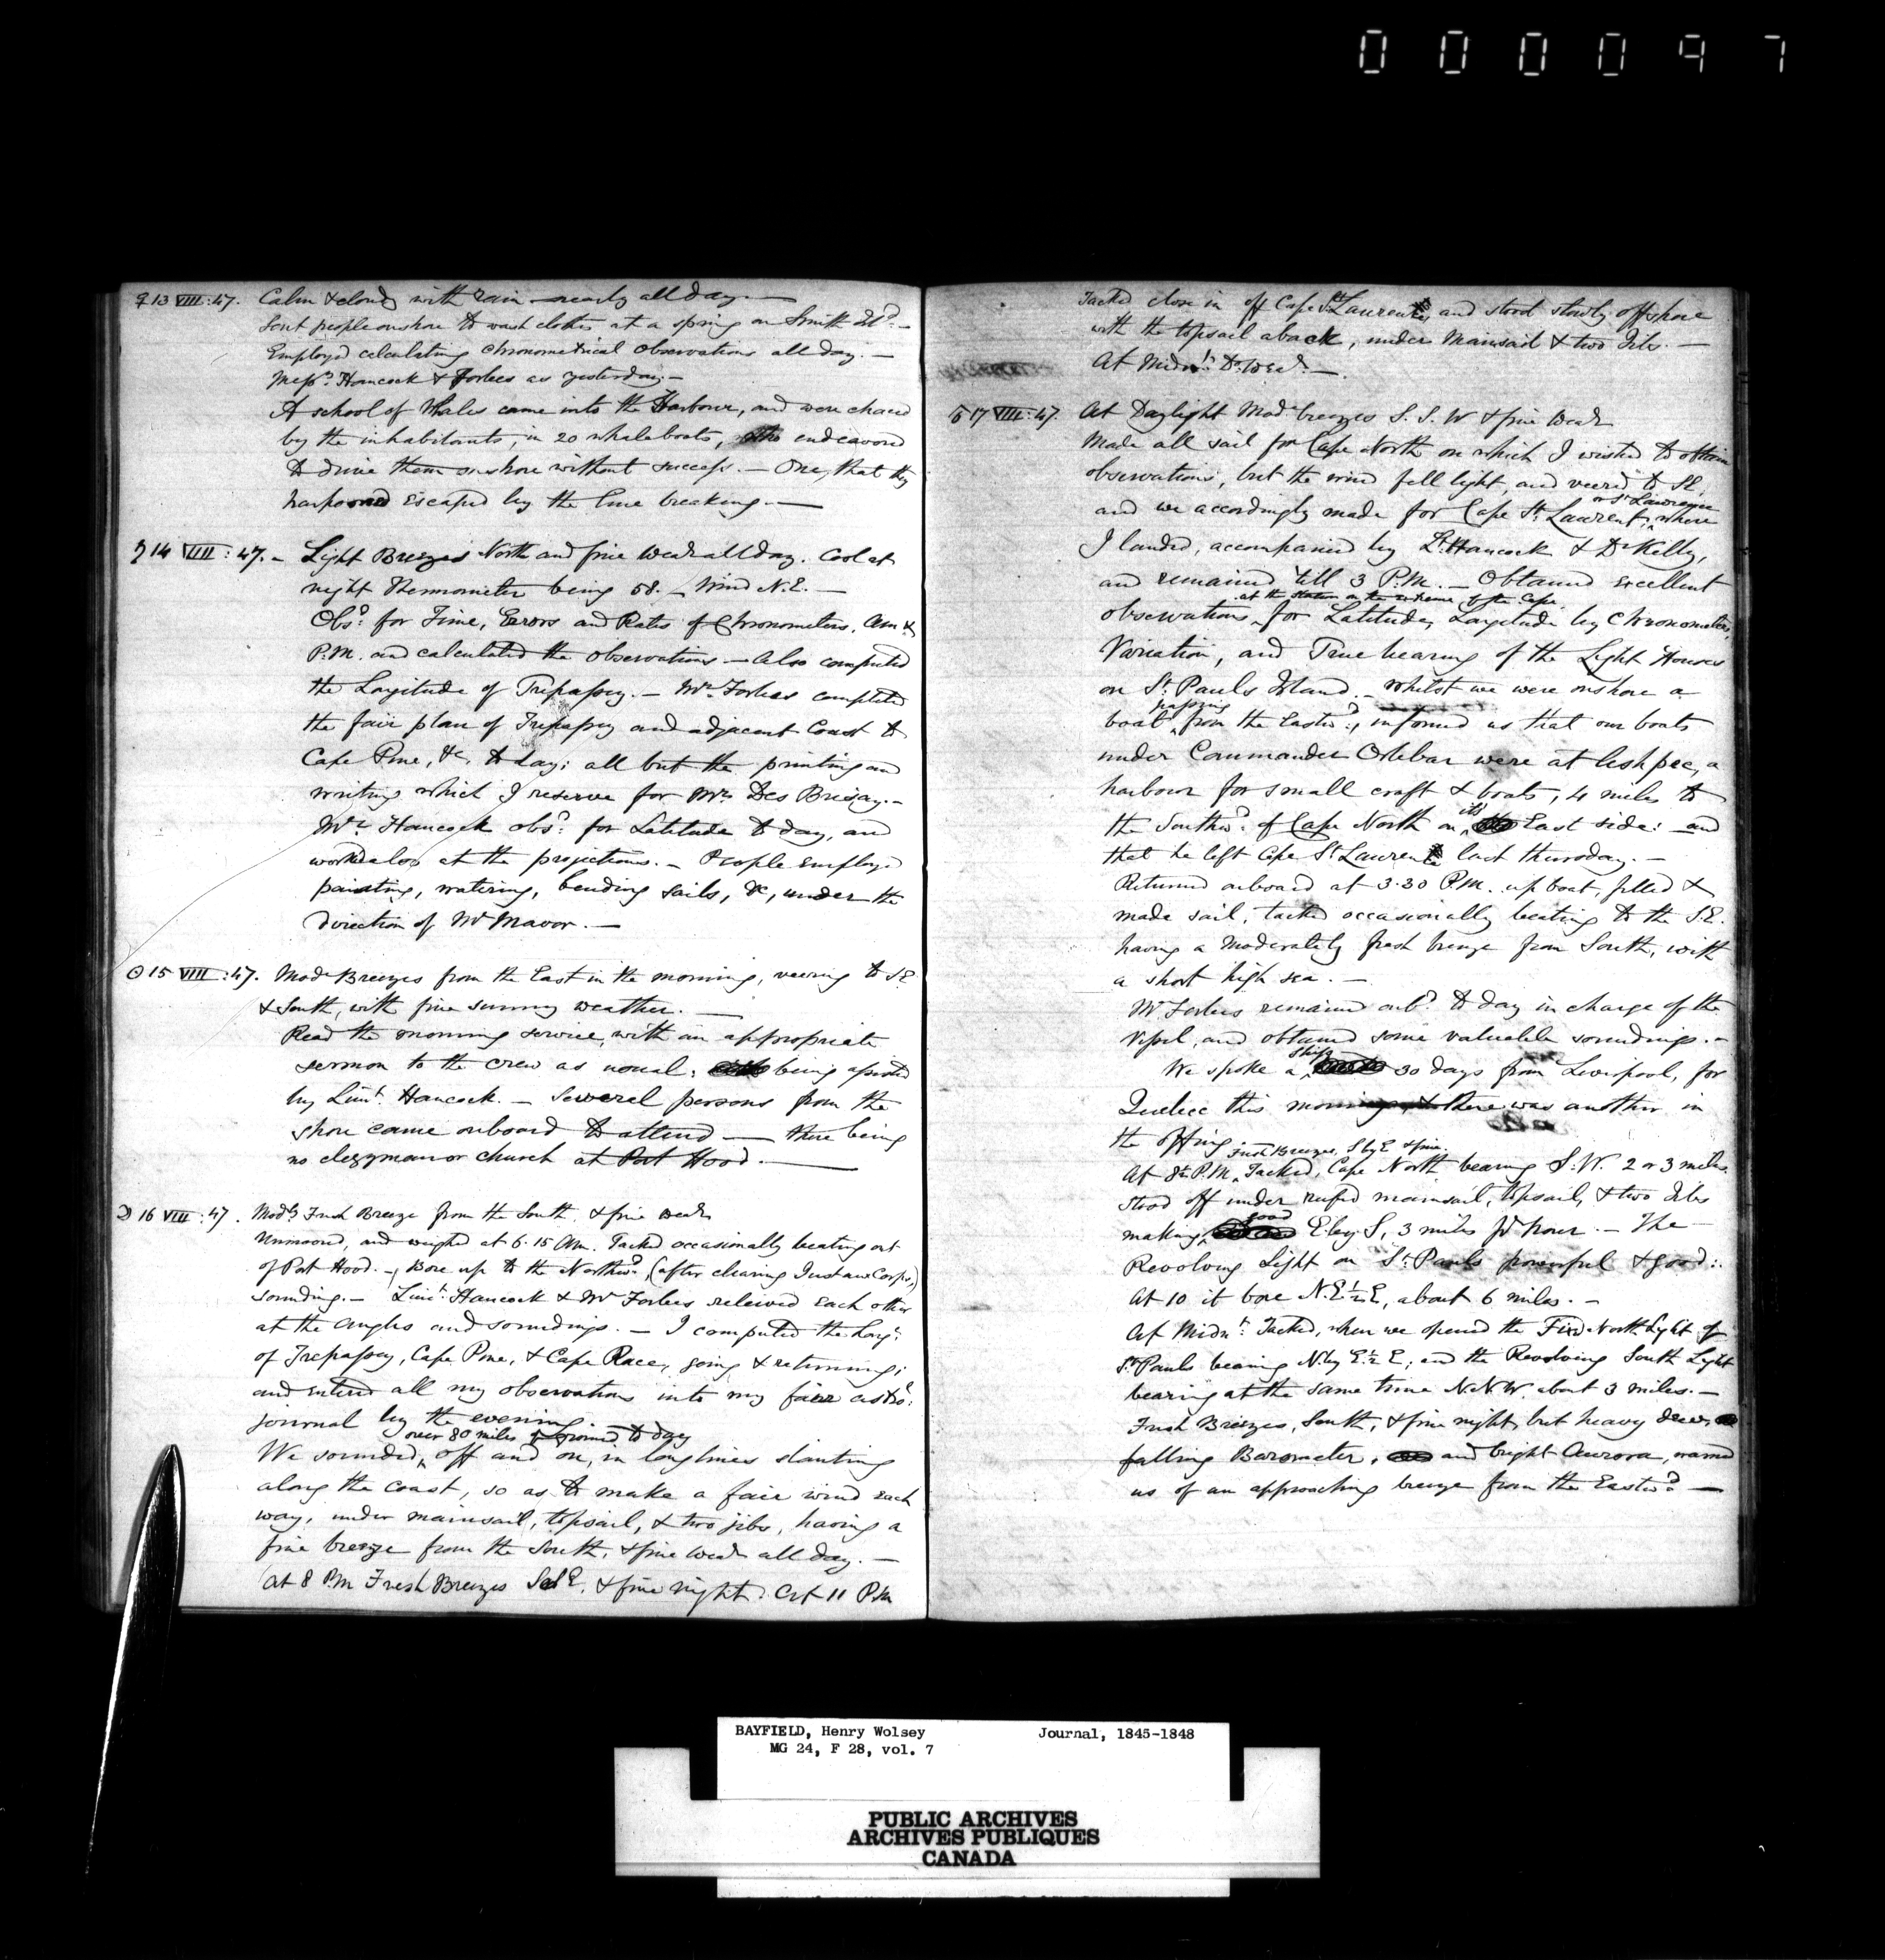 000097
♀ 13 VIII : 47. Calm & cloudy with rain nearly all day. —
Sent people on shore to wash clothes at a spring on Smith Isld. —
Employed calculating Chronometrical Observations all day. —
Messrs. Hancock & Forbes as yesterday. —
A school of Whales came into the Harbour, and were chaced
by the inhabitants, in 20 whaleboats, who endeavored
to drive them on shore without success. — One, that they
harpooned escaped by the line breaking. —
♄ 14 VIII : 47. – Light Breezes North and fine Weather all day. Cool at
night Thermometer being 58. – Wind N.E. —
Obsd. for Time, Errors and Rates of Chronometers, Am &
P.M. and calculated the observations — Also computed
the Longitude of Trepassey. – Mr. Forbes completed
the fair plan of Trepassey and adjacent Coast to
Cape Pine, &c, to day; all but the printing and
writing which I reserve for Mr. Des Brisay. –
Mr. Hancock obsd. for Latitude to day, and
worked also at the projections. – People employed
painting, watering, bending sails, &c, under the
direction of Mr Mavor. —
☉ 15 VIII : 47. Modr Breezes from the East in the morning, veering to SE
& South, with fine sunny weather. —
Read the morning service, with an appropriate
sermon to the crew as usual; being assisted
by Lieut. Hancock. – Several persons from the
shore came onboard to attend — there being
no clergyman or church at Port Hood. —
☽ 16 VIII : 47. Modr Fresh Breeze from the South, & fine Weather
Unmoored, and weighed at 6.15 Am. Tacked occasionally beating out
of Port Hood. – Bore up to the Northwd, (after clearing Just au Corps,)
sounding. – Lieut. Hancock & Mr Forbes relieved each other
at the Angles and soundings. — I computed the Longs.
of Trepassey, Cape Pine, & Cape Race, going & returning;
and entered all my observations into my fair astrol.
journal by the evening. —
over 80 miles of ground to day
We sounded, off and on, in long lines slanting
along the coast, so as to make a fair wind each
way, under mainsail, topsail, & two jibs, having a
fine breeze from the South, & fine Weather all day. —
At 8 P.M Fresh Breezes SbE, & fine night. At 11 P.M
Tacked close in off Cape St Laurent, and stood slowly off shore
with the topsail aback, under Mainsail & two Jibs. —
At Midnt. Do. Wear. —
♂ 17 VIII : 47. At Daylight Modr breezes S.S.W & fine Wear
Made all sail for Cape North on which I wished to obtain
observations, but the wind fell light, and veered to SE,
or St Lawrence
and we accordingly made for Cape St. Laurent, where
I landed, accompanied by Lt. Hancock & Dr Kelly,
and remained till 3 P.M. – Obtained excellent
at the station on the extreme of the Cape
observations, for Latitude, Longitude by Chronometers,
Variation, and True bearing of the Light Houses
on St. Pauls Island. – Whilst we were onshore a
passing
boat, from the Eastwd., informed us that our boats
under Commander Orlebar were at Ashpee, a
harbour for small craft & boats, 4 miles to
its
the Southwd. of Cape North on East side: and
that he left Cape St Laurent last thursday. —
Returned onboard at 3.30 P.M. up boat, filled &
made sail, tacked occasionally beating to the S.E.
having a moderately fresh breeze from South, with
a short high sea. —
Mr. Forbes remained onbd. to day in charge of the
Vessel, and obtained some valuable soundings. –
ship
We spoke a 30 days from Liverpool, for
Quebec this morning & there was another in
the offing
Fresh Breezes, S by E & fine.
At 8h P.M. Tacked, Cape North bearing S.W. 2 or 3 miles.
Stood off under reefed mainsail, topsail, & two Jibs
good
making E by S, 3 miles pr hour. – The
Revolving Light on St. Pauls powerful & good:.
At 10 it bore N.E ½ E, about 6 miles. –
At Midnt. Tacked, when we opened the Fixd North Light of
St. Pauls bearing N by E ½ E; and the Revolving South Light
bearing at the same time N.N.W. about 3 miles. –
Fresh Breezes, South, & fine night, but heavy dews
falling Barometer, and bright Aurora, warned
us of an approaching breeze from the Eastwd. —
BAYFIELD, Henry Wolsey Journal, 1845-1848
MG 24, F 28, vol. 7
PUBLIC ARCHIVES
ARCHIVES PUBLIQUES
CANADA